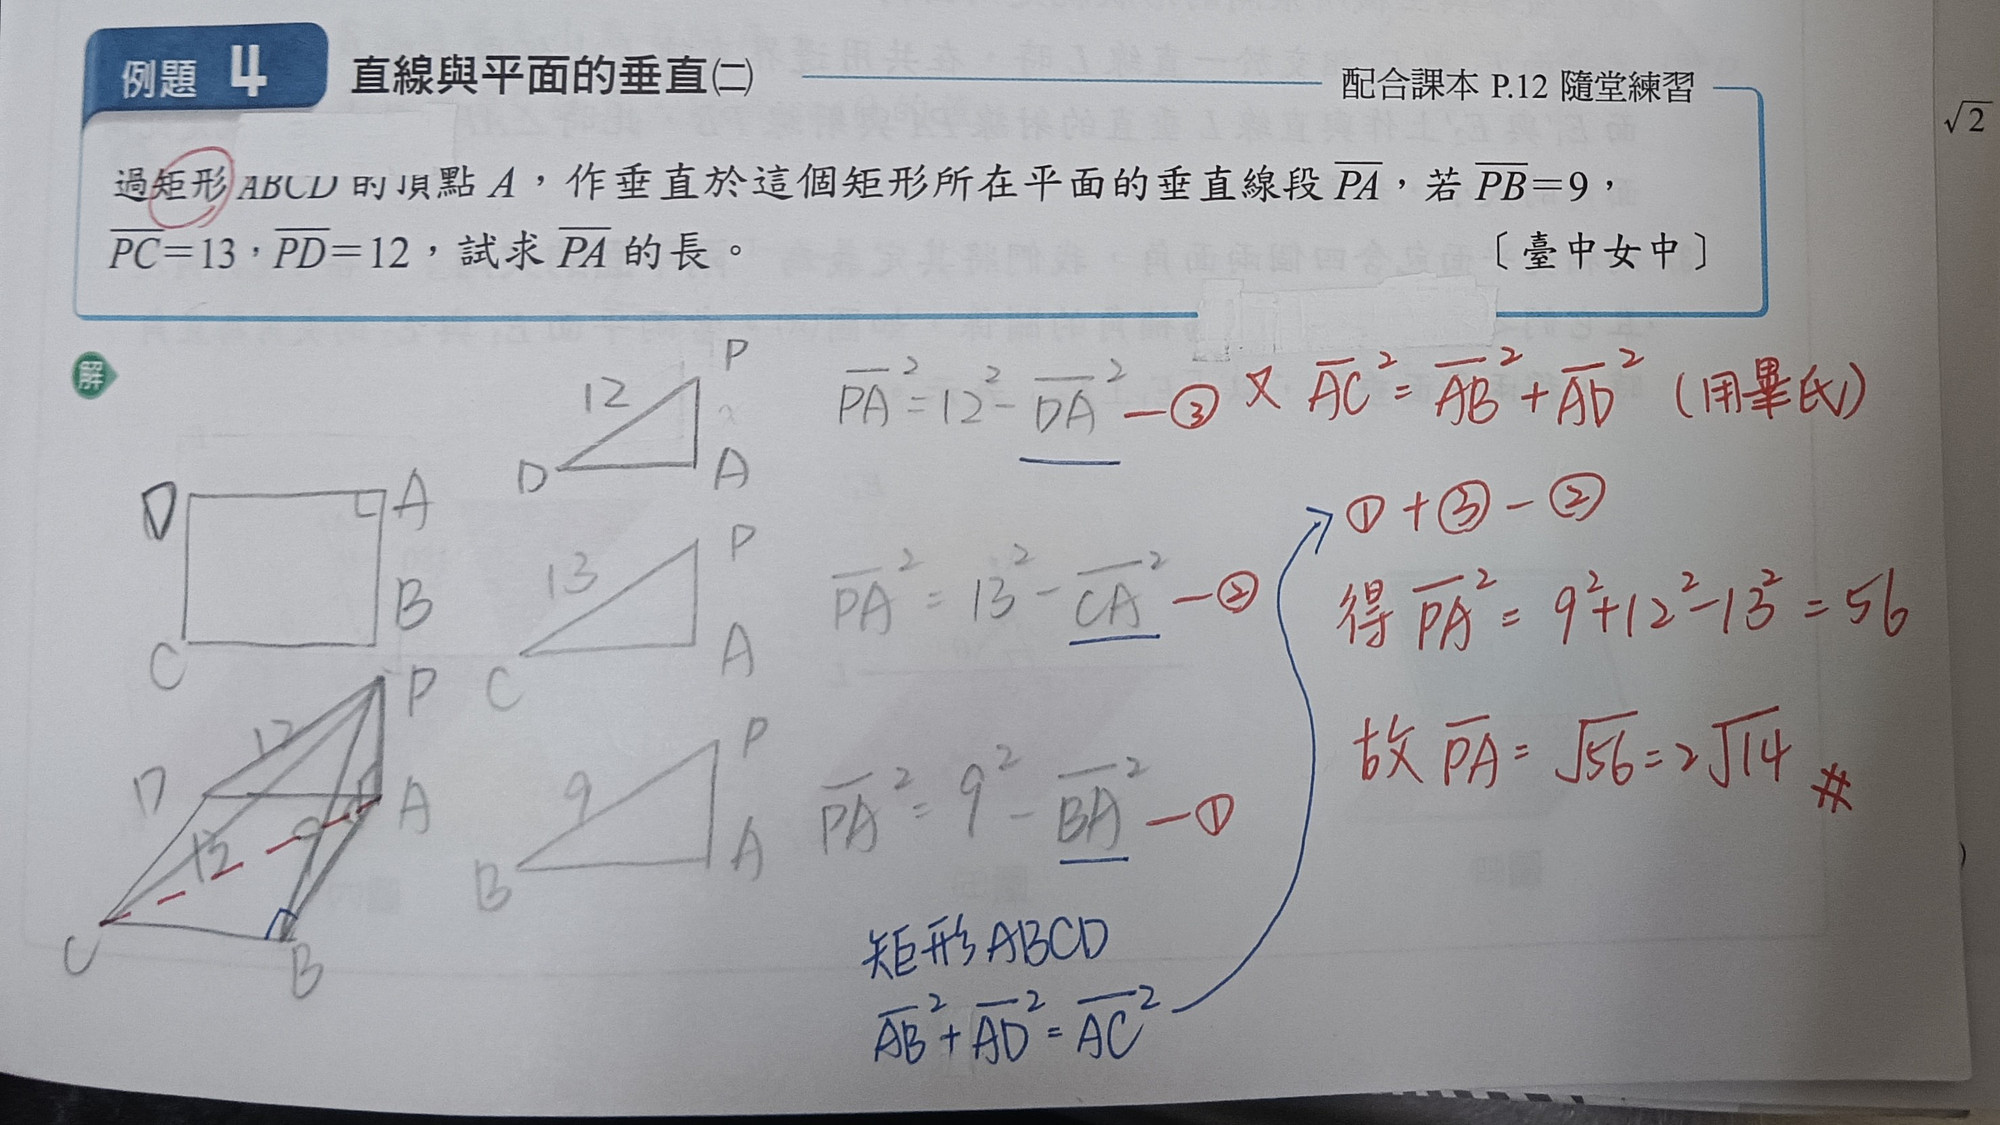 例題 4 直線與平面的垂直㈡ 配合課本 P.12 隨堂練習
√2
過矩形ABCD的頂點 A，作垂直於這個矩形所在平面的垂直線段 $\overline{PA}$，若 $\overline{PB}$=9，
$\overline{PC}$=13，$\overline{PD}$=12，試求 $\overline{PA}$ 的長。 〔臺中女中〕
解
D A
C B
P
12
D A
$\overline{PA}^2=12^2-\overline{DA}^2$ —③
P
13
C A
$\overline{PA}^2=13^2-\overline{CA}^2$ —②
P
12
D A
13 9
C B
P
9
B A
$\overline{PA}^2=9^2-\overline{BA}^2$ —①
矩形ABCD
$\overline{AB}^2+\overline{AD}^2=\overline{AC}^2$
又 $\overline{AC}^2=\overline{AB}^2+\overline{AD}^2$ (用畢氏)
①+③-②
得 $\overline{PA}^2=9^2+12^2-13^2=56$
故 $\overline{PA}=\sqrt{56}=2\sqrt{14}$ #